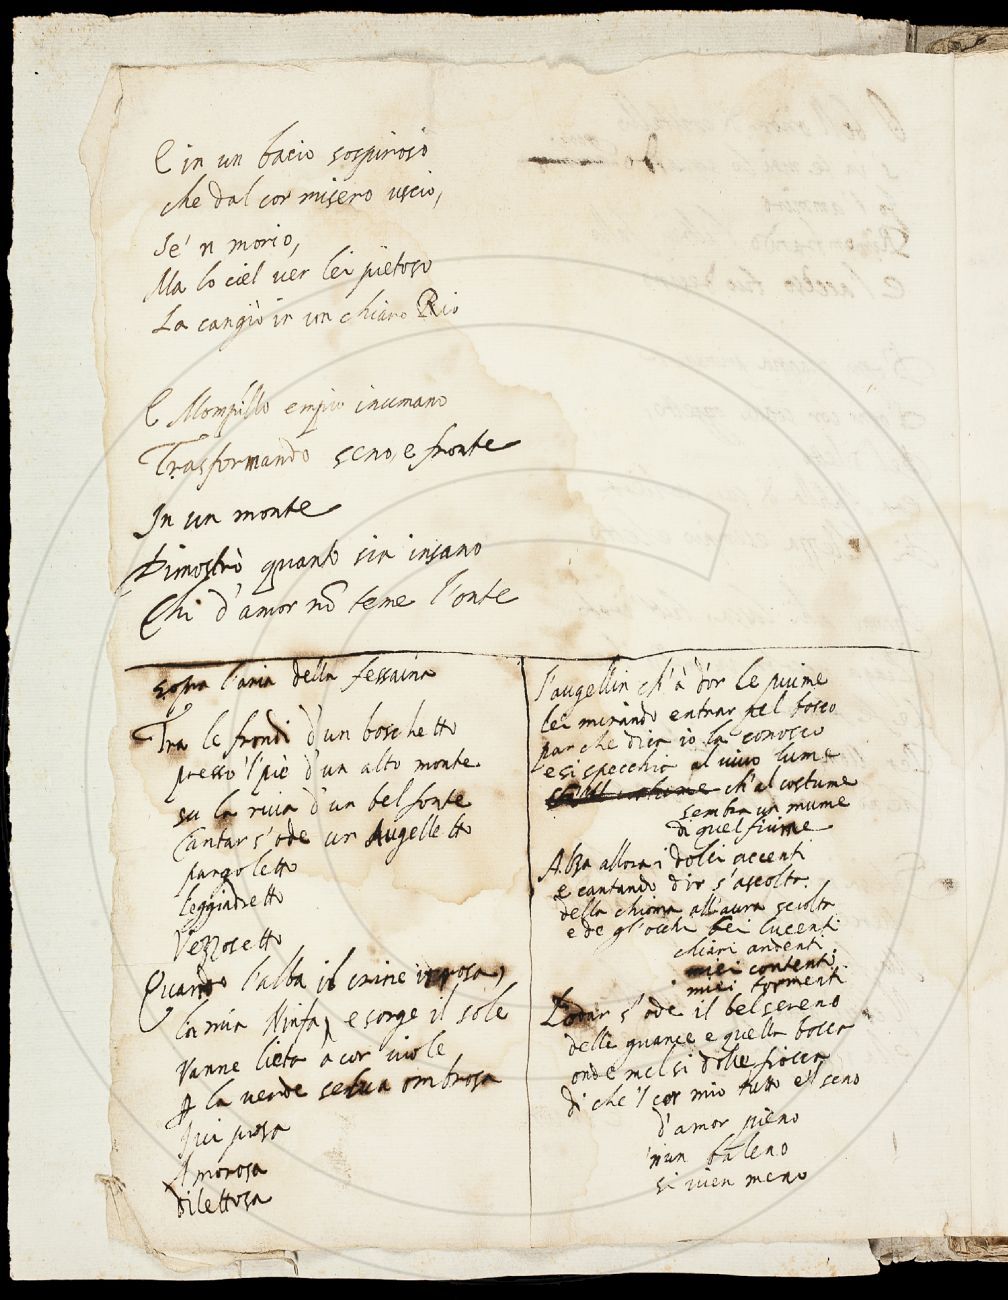 E in un bacio sospiroso
che dal cor misero uscio,
Sé n morio,
Ma lo ciel ver lei pietoso
La cangiò in un chiaro Rio
E Mompillo empio inumano
Trasformando seno, e fronte
In un monte
Dimostrò quanto sia insano
Chi d'amor nõ teme l'onte
sopra l'aria della fessaina
Tra le frondi d'un boschetto
presso 'l piè d'un alto monte
su la riva d'un bel fonte
Cantar s'ode un Augelletto
pargoletto
leggiadretto
Vezzosetto
Quando l'alba il crine
la mia Ninfa, e sorge il sole
vanne lieta a cor viole
la verde selva ombrosa
Ivi posa
Amorosa
dilettosa
l'augellin ch'à d'or le piume
lei mirando entrar nel bosco
par che dica io la conosco
e si specchia al vivo lume
ch'al costume
sembra un nume
di quel fiume
Alza allora i dolci accenti
e cantando dir s'ascolta
della chioma all'aura sciolta
e de gl'occhi bei lucenti
chiari ardenti
miei contenti
miei tormenti
Lodar s'ode il bel sereno
delle guance e quella bocca
onde mel sì dolce fiocca
di che 'l cor mio tutto e 'l seno
d'amor pieno
'n un baleno
si vien meno